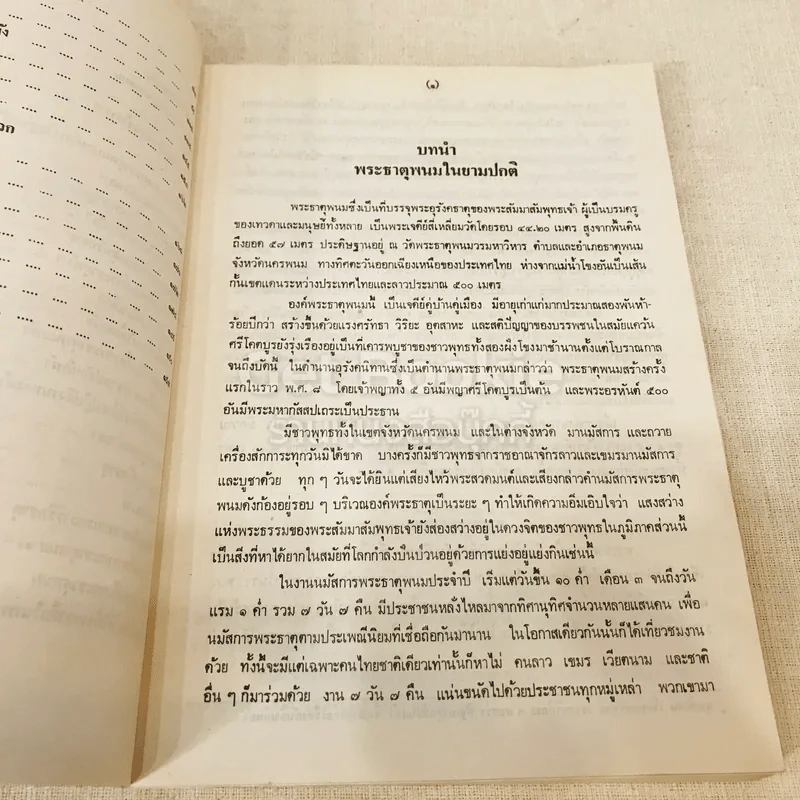 (๑)
บทนำ
พระธาตุพนมในยามปกติ
พระธาตุพนมซึ่งเป็นที่บรรจุพระอุรังคธาตุของพระสัมมาสัมพุทธเจ้า ผู้เป็นบรมครู
ของเทวดาและมนุษย์ทั้งหลาย เป็นพระเจดีย์สี่เหลี่ยมวัดโดยรอบ ๔๔.๒๐ เมตร สูงจากพื้นดิน
ถึงยอด ๕๗ เมตร ประดิษฐานอยู่ ณ วัดพระธาตุพนมวรมหาวิหาร ตำบลและอำเภอธาตุพนม
จังหวัดนครพนม ทางทิศตะวันออกเฉียงเหนือของประเทศไทย ห่างจากแม่น้ำโขงอันเป็นเส้น
กั้นเขตแดนระหว่างประเทศไทยและลาวประมาณ ๕๐๐ เมตร
องค์พระธาตุพนมนี้ เป็นเจดีย์คู่บ้านคู่เมือง มีอายุเก่าแก่มากประมาณสองพันห้า-
ร้อยปีกว่า สร้างขึ้นด้วยแรงศรัทธา วิริยะ อุตสาหะ และสติปัญญาของบรรพชนในสมัยแคว้น
ศรีโคตบูรยังรุ่งเรืองอยู่เป็นที่เคารพบูชาของชาวพุทธทั้งสองฝั่งโขงมาช้านานตั้งแต่โบราณกาล
จนถึงบัดนี้ ในตำนานอุรังคนิทานซึ่งเป็นตำนานพระธาตุพนมกล่าวว่า พระธาตุพนมสร้างครั้ง
แรกในราว พ.ศ. ๘ โดยเจ้าพญาทั้ง ๕ อันมีพญาศรีโคตบูรเป็นต้น และพระอรหันต์ ๕๐๐
อันมีพระมหากัสสปเถระเป็นประธาน
มีชาวพุทธทั้งในเขตจังหวัดนครพนม และในต่างจังหวัด มานมัสการ และถวาย
เครื่องสักการะทุกวันมิได้ขาด บางครั้งก็มีชาวพุทธจากราชอาณาจักรลาวและเขมรมานมัสการ
และบูชาด้วย ทุก ๆ วันจะได้ยินแต่เสียงไหว้พระสวดมนต์และเสียงกล่าวคำนมัสการพระธาตุ
พนมดังก้องอยู่รอบ ๆ บริเวณองค์พระธาตุเป็นระยะ ๆ ทำให้เกิดความอิ่มเอิบใจว่า แสงสว่าง
แห่งพระธรรมของพระสัมมาสัมพุทธเจ้ายังส่องสว่างอยู่ในดวงจิตของชาวพุทธในภูมิภาคส่วนนี้
เป็นสิ่งที่หาได้ยากในสมัยที่โลกกำลังปั่นป่วนอยู่ด้วยการแย่งอยู่แย่งกินเช่นนี้
ในงานนมัสการพระธาตุพนมประจำปี เริ่มแต่วันขึ้น ๑๐ ค่ำ เดือน ๓ จนถึงวัน
แรม ๑ ค่ำ รวม ๗ วัน ๗ คืน มีประชาชนหลั่งไหลมาจากทิศานุทิศจำนวนหลายแสนคน เพื่อ
นมัสการพระธาตุตามประเพณีนิยมที่เชื่อถือกันมานาน ในโอกาสเดียวกันนั้นก็ได้เที่ยวชมงาน
ด้วย ทั้งนี้จะมีแต่เฉพาะคนไทยชาติเดียวเท่านั้นก็หาไม่ คนลาว เขมร เวียดนาม และชาติ
อื่น ๆ ก็มาร่วมด้วย งาน ๗ วัน ๗ คืน แน่นขนัดไปด้วยประชาชนทุกหมู่เหล่า พวกเขามา